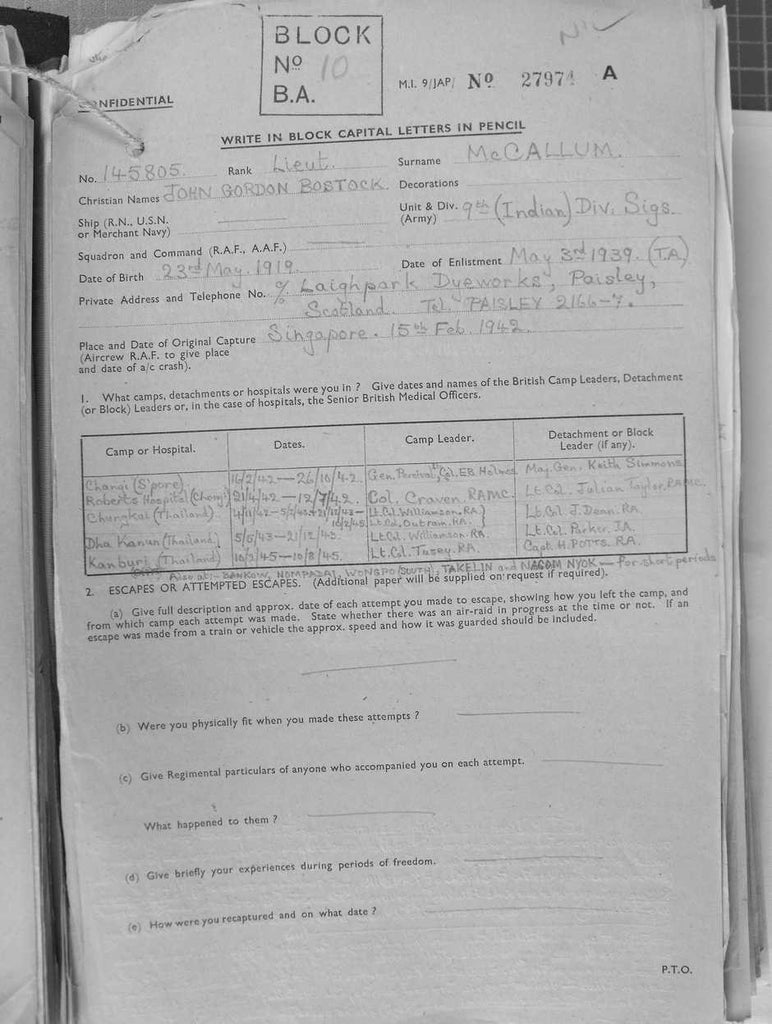 BLOCK
No 10
B.A.
M.I. 9/JAP/ No 27974 A
CONFIDENTIAL
WRITE IN BLOCK CAPITAL LETTERS IN PENCIL
No. 145805. Rank Lieut. Surname McCALLUM.
Christian Names JOHN GORDON BOSTOCK. Decorations
Ship (R.N., U.S.N. or Merchant Navy) Unit & Div. (Army) 9th (Indian) Div. Sigs.
Squadron and Command (R.A.F., A.A.F.)
Date of Birth 23rd May 1919. Date of Enlistment May 3rd 1939. (T.A.)
Private Address and Telephone No. c/o Laighpark Dyeworks, Paisley,
Scotland. Tel. PAISLEY 2166-7.
Place and Date of Original Capture Singapore. 15th Feb. 1942.
(Aircrew R.A.F. to give place
and date of a/c crash).
1. What camps, detachments or hospitals were you in ? Give dates and names of the British Camp Leaders, Detachment
(or Block) Leaders or, in the case of hospitals, the Senior British Medical Officers.
Camp or Hospital. Dates. Camp Leader. Detachment or Block Leader (if any).
Changi (S'pore). 16/2/42—26/10/42. Gen. Percival, Col. E.B. Holmes Maj. Gen. Keith Simmons
Roberts Hospital (Changi) 21/4/42—12/7/42. Col. Craven RAMC. Lt. Col. Julian Taylor, RAMC.
Chungkai (Thailand). 4/11/42—5/5/43 + 21/12/43—10/2/45. Lt. Col. Williamson, RA) Lt. Col. Outram, RA.) Lt. Col. J. Dean. RA.
Dha Kanun (Thailand) 5/5/43—21/12/43. Lt. Col. Williamson. RA. Lt. Col. Parker. IA.
Kanburi (Thailand) 10/2/45—10/8/45. Lt. Col. Tusey. RA. Capt. H. POTTS. RA.
Also at:- BANKOW, NOMPADAI, WONGPO (SOUTH), TAKELIN and NAGOM NYOK — for short periods
2. ESCAPES OR ATTEMPTED ESCAPES. (Additional paper will be supplied on request if required).
(a) Give full description and approx. date of each attempt you made to escape, showing how you left the camp, and
from which camp each attempt was made. State whether there was an air-raid in progress at the time or not. If an
escape was made from a train or vehicle the approx. speed and how it was guarded should be included.
(b) Were you physically fit when you made these attempts ?
(c) Give Regimental particulars of anyone who accompanied you on each attempt.
What happened to them ?
(d) Give briefly your experiences during periods of freedom.
(e) How were you recaptured and on what date ?
P.T.O.